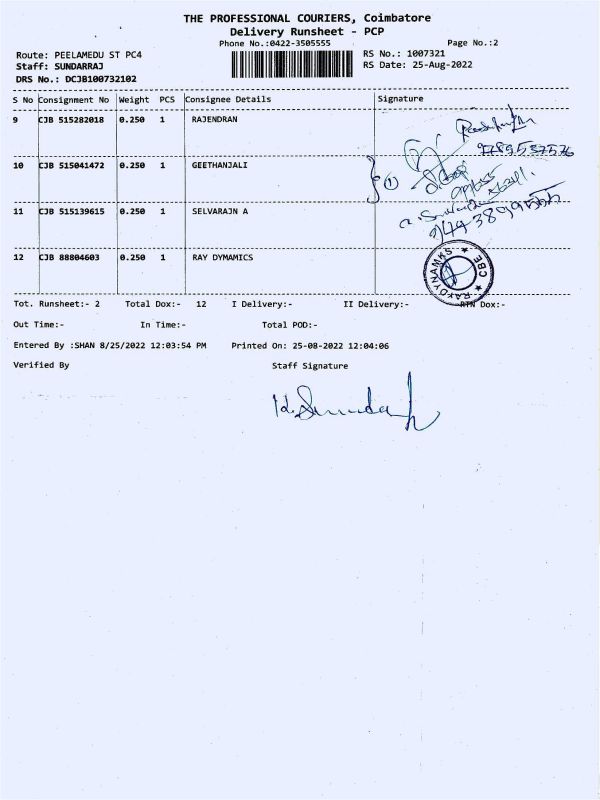 THE PROFESSIONAL COURIERS, Coimbatore
Delivery Runsheet - PCP
Phone No.:0422-3505555 Page No.:2
Route: PEELAMEDU ST PC4 RS No.: 1007321
Staff: SUNDARRAJ RS Date: 25-Aug-2022
DRS No.: DCJB100732102
S No Consignment No Weight PCS Consignee Details Signature
9 CJB 515282018 0.250 1 RAJENDRAN
10 CJB 515041472 0.250 1 GEETHANJALI
11 CJB 515139615 0.250 1 SELVARAJN A
12 CJB 88804603 0.250 1 RAY DYMAMICS
Tot. Runsheet:- 2 Total Dox:- 12 I Delivery:- II Delivery:- RTN Dox:-
Out Time:- In Time:- Total POD:-
Entered By :SHAN 8/25/2022 12:03:54 PM Printed On: 25-08-2022 12:04:06
Verified By Staff Signature